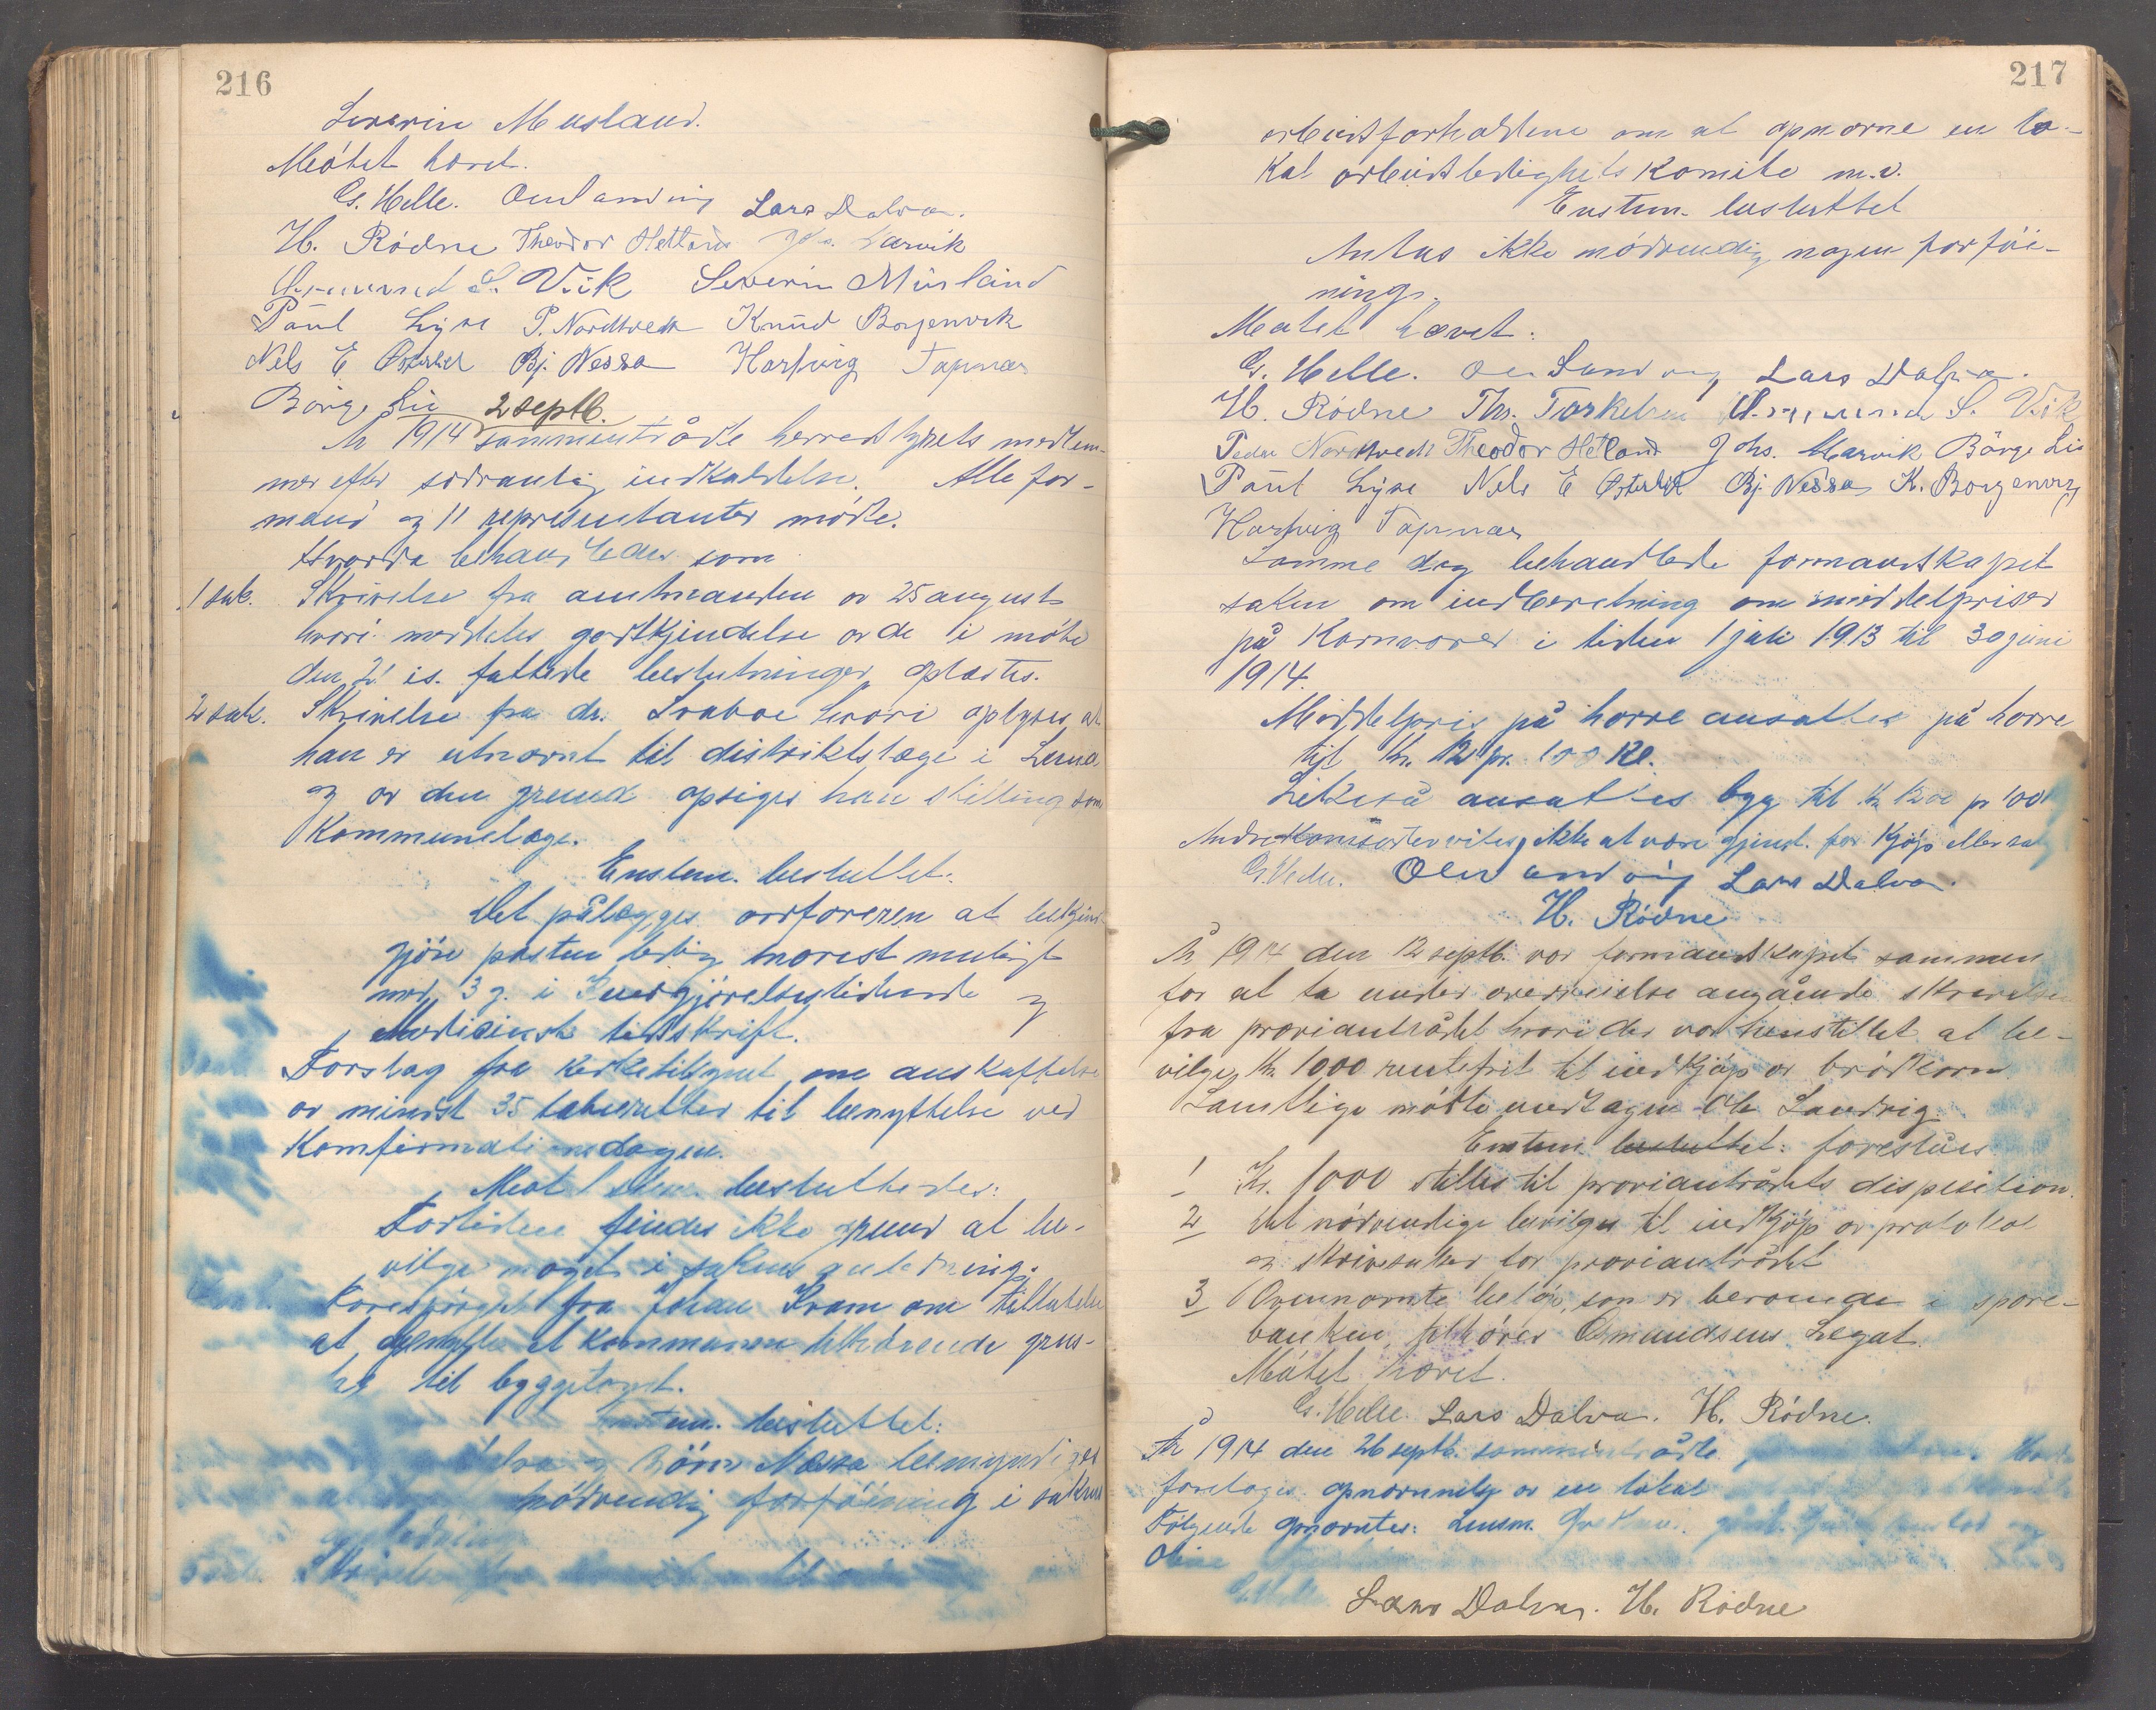 216
Severin Musland.
Møtet hævet.
G. Helle. Ole Landvig Lars Dalva.
H. Rødne Theodor Hetland Johs. Marvik
Amund S. Vik Severin Musland
Paul Lyse P. Nordtveit Knud Borgenvik
Nels E Østerhus Bj. Nessa Hartvig Tapnær
Børge Lie 2 septb.
År 1914 sammentrådte herredstyrets medlem-
mer efter sedvanlig indkaldelse. Alle for-
mænd og 11 representanter møtte.
Hvorda behandledes som
1 sak. Skrivelse fra amtmanden av 25 august
hvori meddeles godkjendelse av de i møte
den 21 ds. fattede beslutninger oplæstes.
2 sak. Skrivelse fra dr. hvori oplyses, at
han er utnævnt til distriktslæge i
og av den grund opsiger han stilling som
Kommunelæge.
Enstem. besluttet:
Det pålægges ordføreren at bekjendt-
gjøre posten ledig snarest muligt
med 3 g. i Kundgjørelsestidende og
Medicinsk tidsskrift.
Forslag fra kirketilsynet om anskaffelse
av mindst 35 taburetter til benyttelse ved
Komfirmationsdagen.
Mot 1 stem. besluttedes:
Fortiden findes ikke grund at be-
vilge noget i sakens anledning.
Forespørgsel fra Johan Kvam om tillatelse
at benytte et kommunen tilhørende grus-
tak til byggetomt.
Enstem. besluttet:
Dalva og Bjørn Nessa bemyndiges
nødvendig forføining i sakens
anledning
5 sak. Skrivelse fra
217
arbeidsforholdene om at opnævne en lo-
kal arbeidsledighets komite m.v.
Enstem. besluttet
Antas ikke nødvendig nogen forføi-
ning.
Møtet hævet.
G. Helle. Ole Landvig Lars Dalva.
H. Rødne Ths. Torkelsen Amund S. Vik
Peder Nordtveit Theodor Hetland Johs. Marvik Børge Lie
Paul Lyse Nels E Østerhus Bj. Nessa K. Borgenvig
Hartvig Tapnær
Samme dag behandlede formandskapet
saken om indberetning om middelpriser
på Kornvarer i tiden 1 juli 1913 til 30 juni
1914.
Middelpris på havre ansattes på havre
til kr. 12 pr. 100 Kl.
Likeså ansattes byg til kr 12 00 pr 100
Andre Kornsorter vites ikke at være gjenst. for kjøp eller salg
G. Helle. Ole Landvig Lars Dalva.
H. Rødne
År 1914 den 12 septb. var formandskapet sammen
for at ta under overveielse angående skrivelse
fra proviantrådet hvori der var henstillet at be-
vilges kr. 1000 rentefrit til indkjøp av brødkorn.
Samtlige møtte undtagen Ole Landvig.
Enstem. besluttet: foreslåes
1 Kr. 1000 stilles til proviantrådets disposition.
2 Det nødvendige bevilges til indkjøp av protokol
og skrivesaker for proviantrådet
3 Ovennævnte beløp, som er beroende i spare-
banken, tilhører Osmundsens Legat.
Møtet hævet.
G. Helle. Lars Dalva. H. Rødne.
År 1914 den 26 septb. sammentrådte
foretoges opnævnelse av en lokal
Følgende opnævntes: Lensm.
Oline
G. Helle. Lars Dalva. H. Rødne